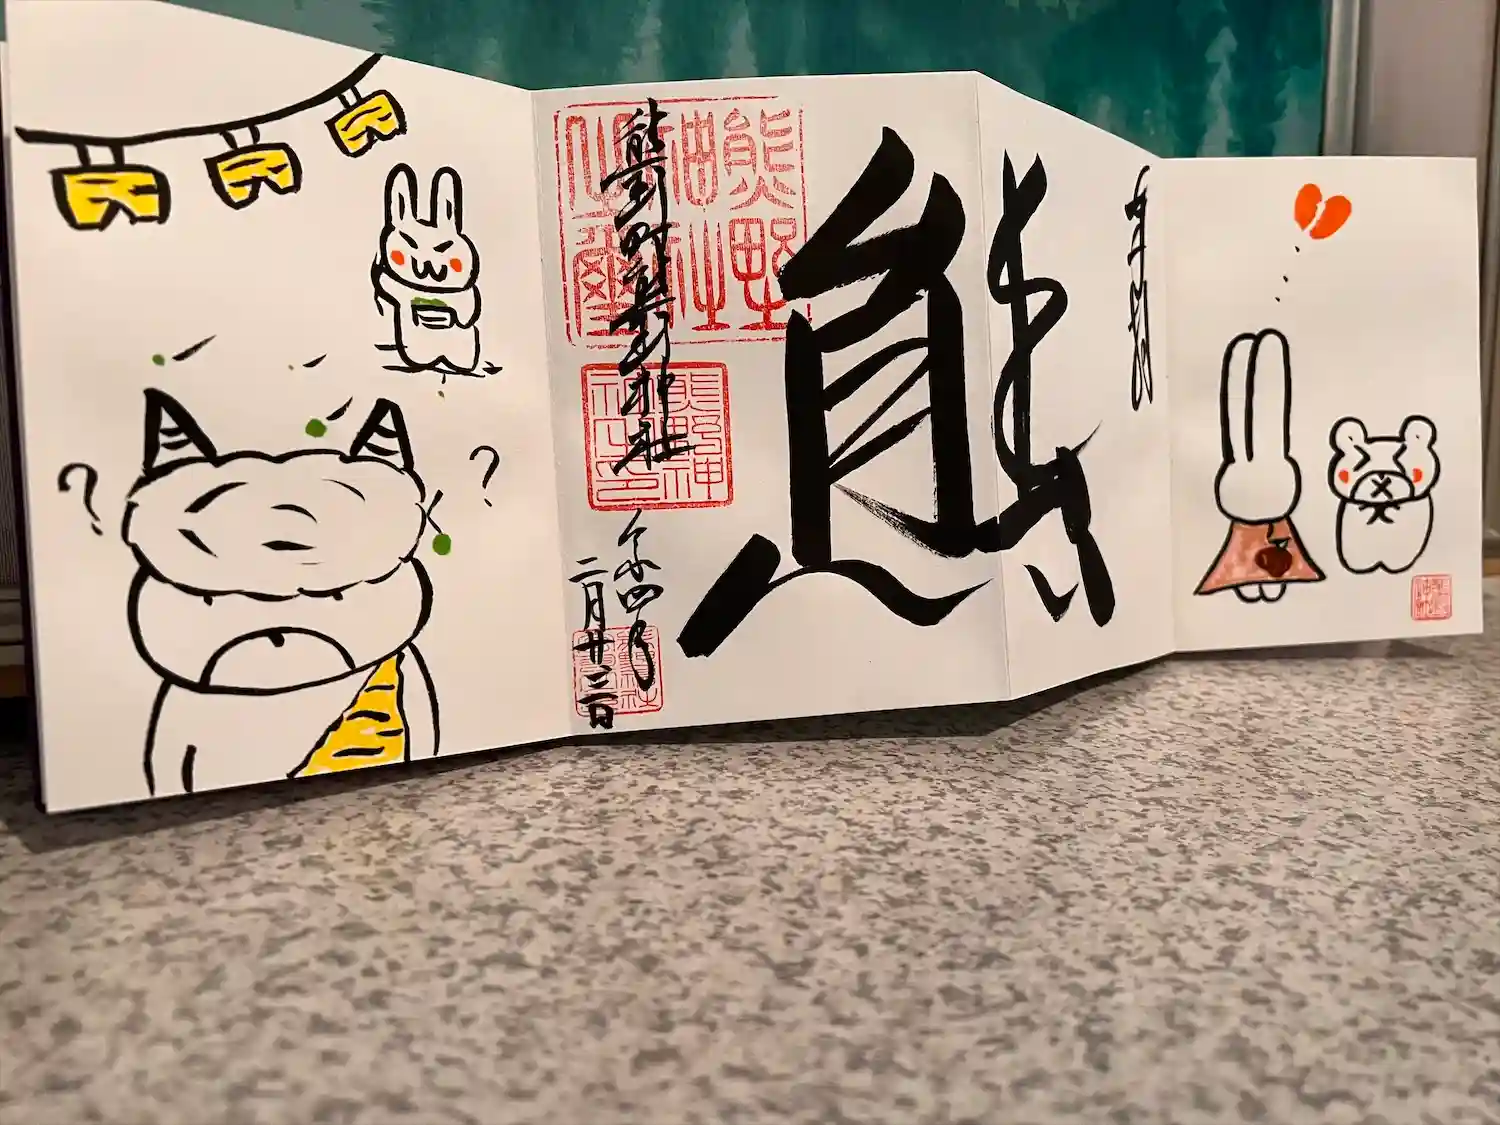 熊
熊野町熊野神社
令和四年
二月廿三日
熊野
神社
之璽
熊野神
社之印
?
?